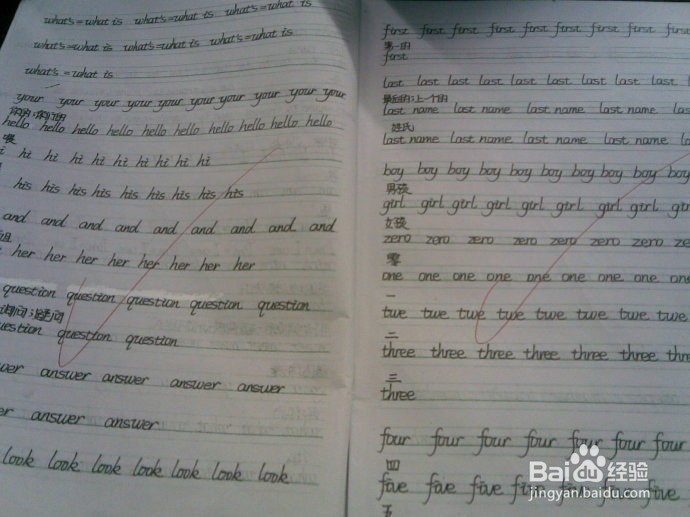 what's=what is what's=what is what's=what is
what's=what is what's=what is what's=what is
what's=what is
your your your your your your your your your your
你的;你们的
hello hello hello hello hello hello hello hello hello hello
嘿
hi hi hi hi hi hi hi hi
his his his his his his his his
and and and and and and and and
her her her her her her her her
question question question question question
询问;疑问
question question
answer answer answer answer
answer answer
look look look look look look look
first first first first first first first first first
第一的
first
last last last last last last last last last
最后的;上一个的
last name last name last name last name last name
姓氏
last name last name last name last name
boy boy boy boy boy boy boy boy boy boy
男孩
girl girl girl girl girl girl girl girl
女孩
zero zero zero zero zero zero zero
零
one one one one one one one one one
一
twe twe twe twe twe twe twe twe
二
three three three three three three
三
three
four four four four four four four
四
five five five five five five five
五
Baidu 经验
jingyan.baidu.com